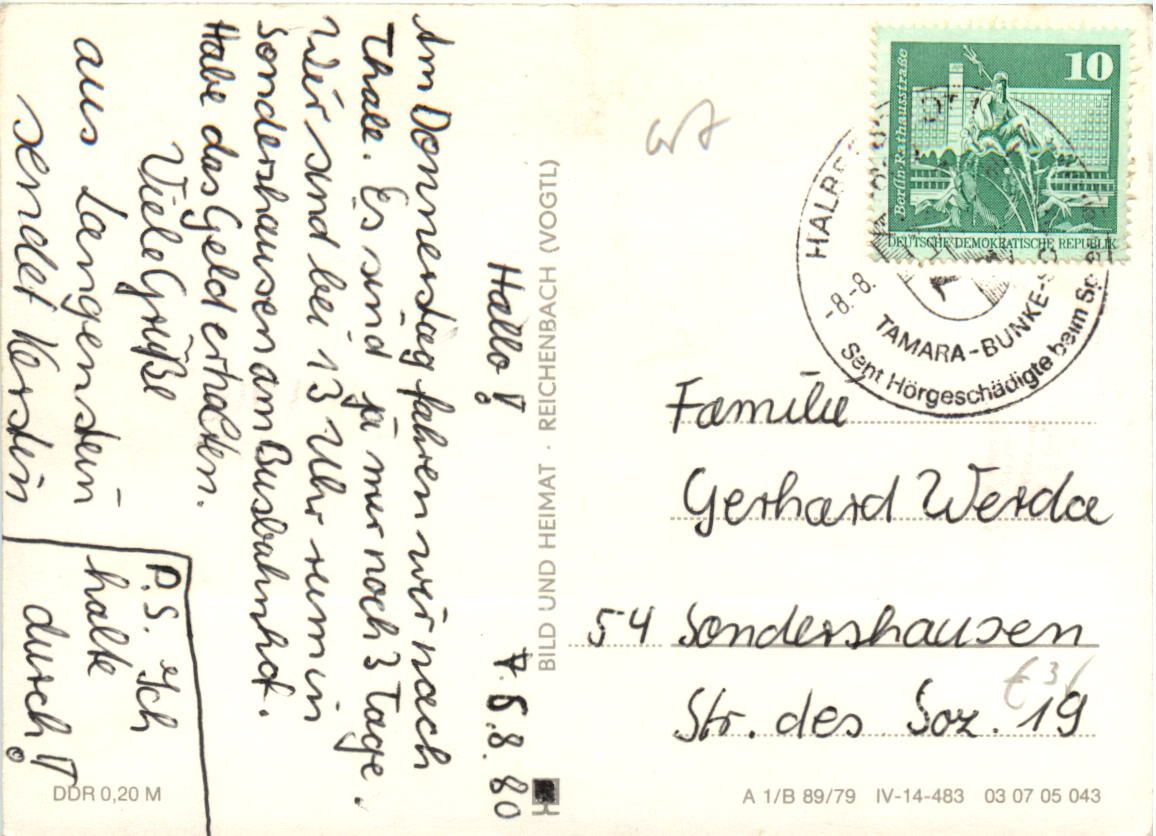 Hallo!
Am Donnerstag fahren wir nach
Thale. Es sind ja nur noch 3 Tage.
Wir sind bei 13 Uhr rum in
Sondershausen am Busbahnhof.
Habe das Geld erhalten.
Viele Grüße
aus Langenstein
sendet Kerstin
P.S. Ich
halte
durch!!
BILD UND HEIMAT · REICHENBACH (VOGTL)
DDR 0,20 M
10
Berlin-Rathausstraße
DEUTSCHE DEMOKRATISCHE REPUBLIK
-8.-8.
TAMARA-BUNKE-S
Sent Hörgeschädigte beim Sp
Familie
Gerhard Werda
54 Sondershausen
Str. des Soz. 19
A 1/B 89/79 IV-14-483 03 07 05 043